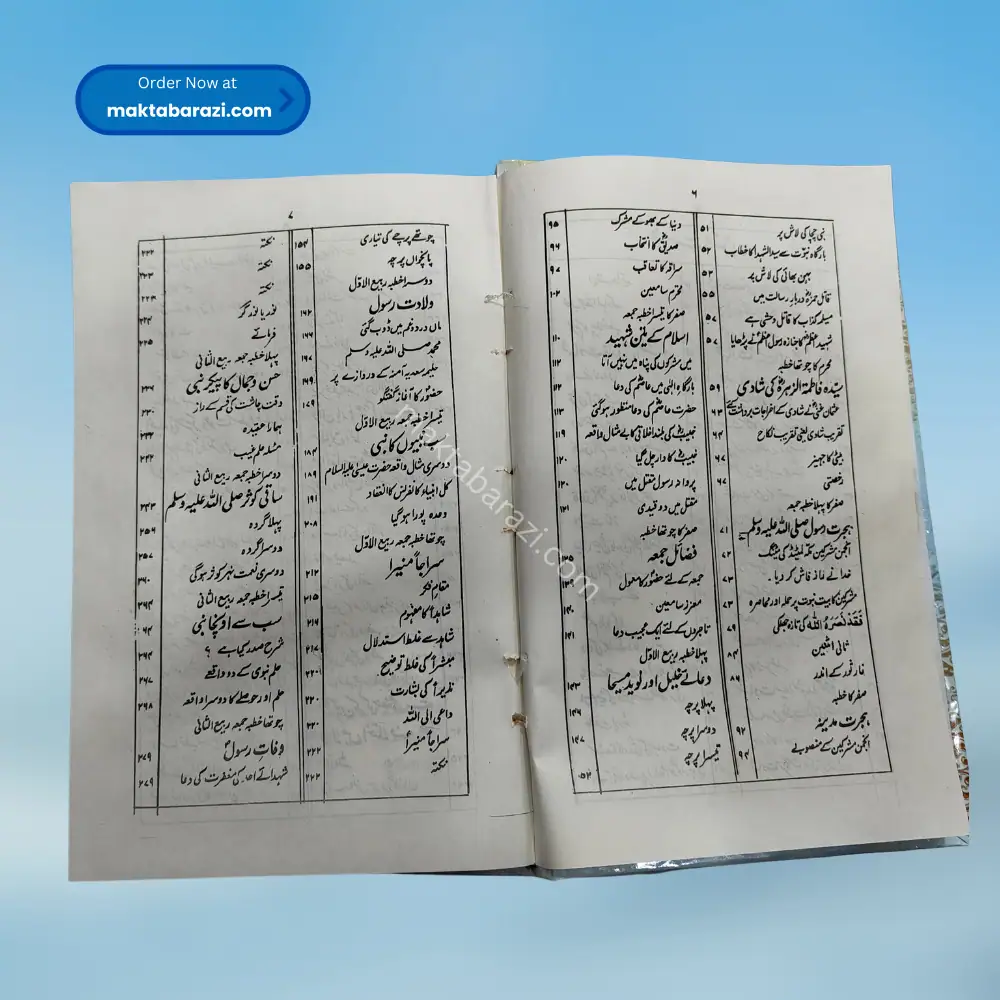 Order Now at
maktabarazi.com
۶
نبی چچا کی لاش پر ۵۱
بارگاہ نبوت سے سید الشہدا کا خطاب ۵۲
بہن بھائی کی لاش پر ۵۳
قاتل حمزہ دربار رسالت میں ۵۵
مسیلمہ کذاب کا قاتل وحشی ہے ۵۷
شہید اعظم کا جنازہ رسول اعظم نے پڑھایا ۵۷
محرم کا چوتھا خطبہ
سیدہ فاطمۃ الزہرہ کی شادی ۵۹
عثمان غنی نے شادی کے اخراجات برداشت کیے ۶۳
تقریب شادی یعنی تقریب نکاح ۶۴
بیٹی کا جہیز ۶۷
رخصتی ۶۷
صفر کا پہلا خطبہ جمعہ
ہجرت رسول صلی اللہ علیہ وسلم ۷۱
انجمن مشرکین مکہ لمیٹڈ کی میٹنگ ۷۲
خدا نے راز فاش کر دیا۔ ۷۳
مشرکین کا بیت نبوت پر حملہ اور محاصرہ ۷۳
فَقَدْ نَصَرَهُ اللّٰه کی تازہ جھلکی ۷۹
ثانی اثنین ۸۴
غار ثور کے اندر ۸۶
صفر کا خطبہ
ہجرت مدینہ ۹۲
انجمن مشرکین کے منصوبے ۹۴
دنیا کے بھوکے مشرک ۹۵
صدیق کا انتخاب ۹۶
سراقہ کا تعاقب ۹۷
محترم سامعین ۱۰۲
صفر کا تیسرا خطبہ جمعہ
اسلام کے تین شہید ۱۱۰
میں مشرکوں کی پناہ میں نہیں آتا ۱۱۲
بارگاہ الٰہی میں عاصم کی دعا ۱۱۲
حضرت عاصم کی دعا منظور ہوگئی ۱۱۳
خبیب کی بلند اخلاقی کا بے مثال واقعہ ۱۱۹
خبیب کا دار چل گیا ۱۲۰
پروانہ رسول مقتل میں ۱۲۰
مقتل میں دو قیدی ۱۲۱
صفر کا چوتھا خطبہ
فضائل جمعہ ۱۳۵
جمعہ کے لئے حضور کا معمول ۱۳۹
معزز سامعین ۱۴۰
تاجروں کے لئے ایک عجیب دعا ۱۴۱
پہلا خطبہ ربیع الاول
دعائے خلیل اور نوید مسیحا ۱۴۳
پہلا پرچہ ۱۴۶
دوسرا پرچہ ۱۴۷
تیسرا پرچہ ۱۵۲
۷
چوتھے پرچے کی تیاری ۱۵۴
پانچواں پرچہ ۱۵۵
دوسرا خطبہ ربیع الاول
ولادت رسول ۱۶۲
ماں درد و غم میں ڈوب گئی ۱۶۶
محمد صلی اللہ علیہ وسلم ۱۶۷
حلیمہ سعدیہ آمنہ کے دروازے پر ۱۶۹
حضور کا آغاز گفتگو ۱۷۹
تیسرا خطبہ جمعہ ربیع الاول
سب نبیوں کا نبی ۱۸۴
دوسری مثال واقعہ حضرت عیسیٰ علیہ السلام ۱۸۹
کل انبیاء کانفرنس کا انعقاد ۱۹۱
وعدہ پورا ہو گیا ۲۰۸
چوتھا خطبہ جمعہ ربیع الاول
سراجاً منیرا ۲۱۲
مقام فکر ۲۱۵
شاہداً کا مفہوم ۲۱۶
شاہد سے غلط استدلال ۲۱۷
مبشراً کی غلط توضیح۔ ۲۲۰۱
نذیراً کی بشارت ۲۲۰
داعی الی اللہ ۲۲۰
سراجاً منیراً ۲۲۲
نکتہ ۲۲۲
نکتہ ۲۲۲
نکتہ ۲۲۳
نکتہ ۲۲۳
نور یا نور گر ۲۲۴
فرمائے ۲۲۵
پہلا خطبہ جمعہ ربیع الثانی
حسن و جمال کا پیکر نبی ۲۲۶
وقت چاشت کی قسم کے راز ۲۳۰
ہمارا عقیدہ ۲۳۲
مسئلہ علم غیب ۲۴۲
دوسرا خطبہ جمعہ ربیع الثانی
ساقی کوثر صلی اللہ علیہ وسلم ۲۴۳
پہلا گردہ ۲۵۶
دوسرا گردہ ۲۵۷
دوسری نعمت نہر کوثر ہوگی ۲۶۰
تیسرا خطبہ جمعہ ربیع الثانی ۲۶۴
سب سے اونچا نبی ۶۴
شرح صدر کیا ہے ؟ ۲۶۴
حلم نبوی کے دو واقعے ۲۶۷
حلم اور حوصلے کا دوسرا واقعہ ۲۶۸
چوتھا خطبہ جمعہ ربیع الثانی
وفات رسول ۲۷۹
شہدائے احد کی مغفرت کی دعا ۲۷۹
maktabarazi.com